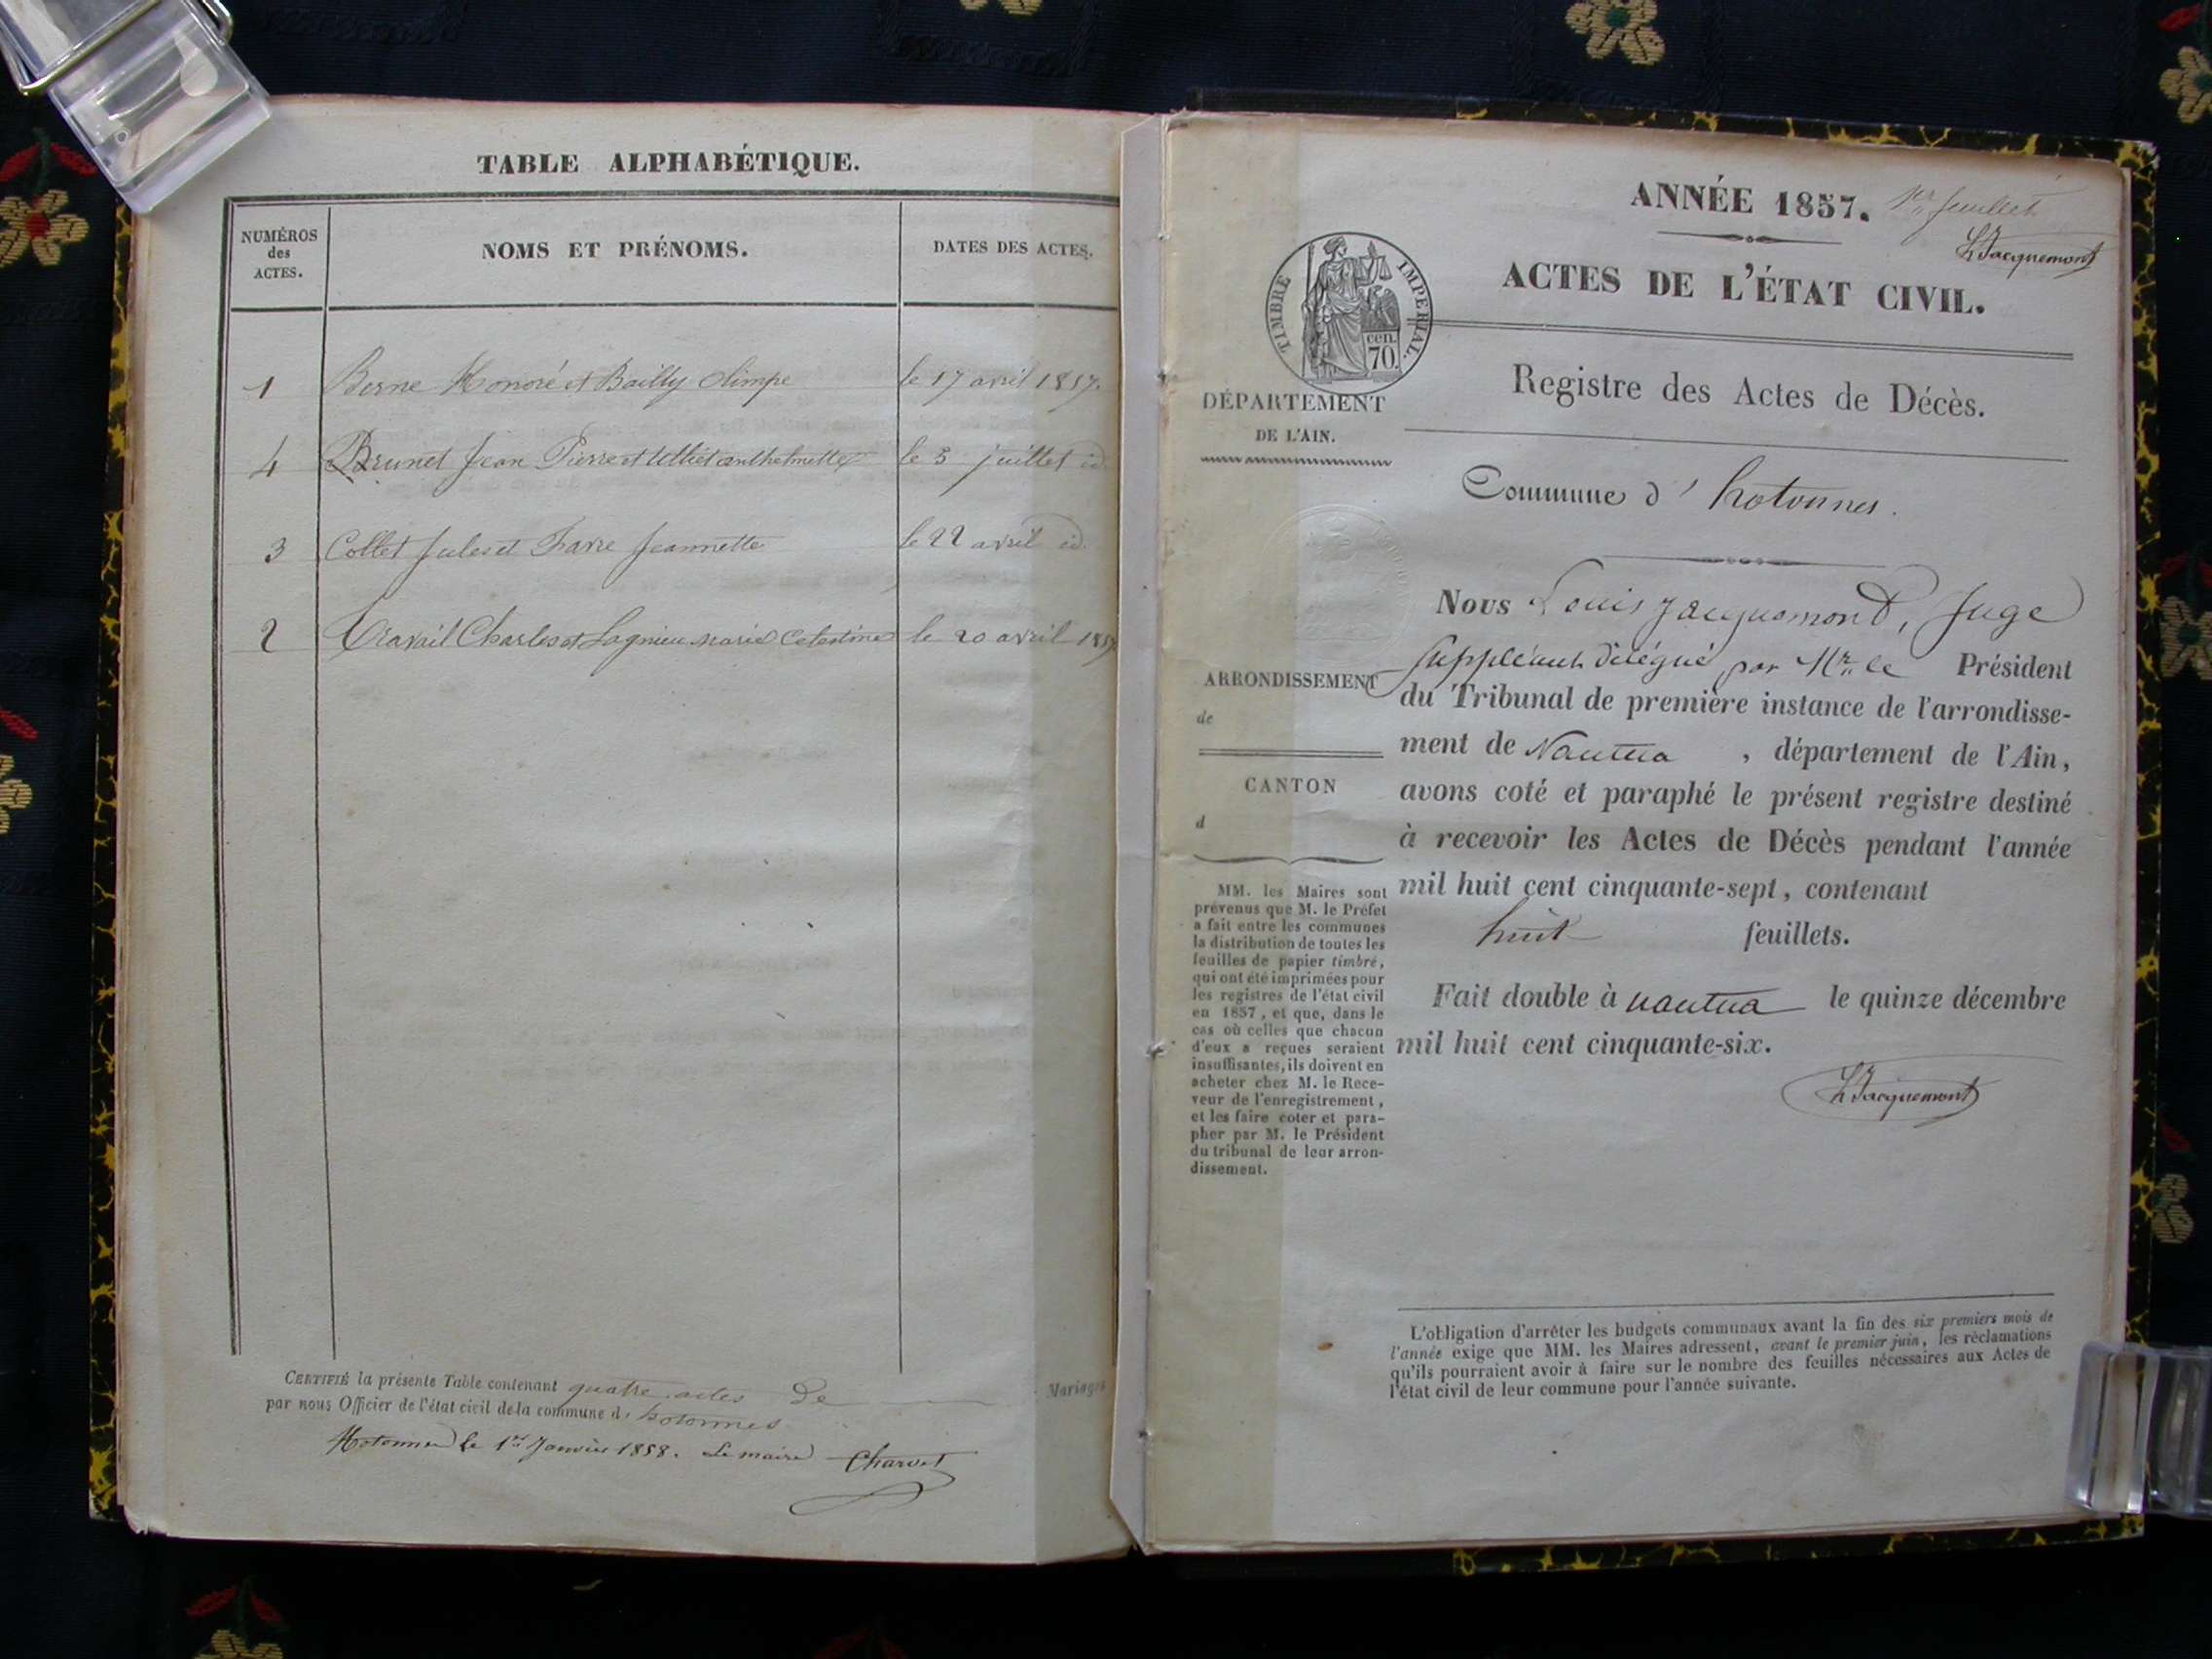 TABLE ALPHABÉTIQUE.
NUMÉROS
des
ACTES.
NOMS ET PRÉNOMS.
DATES DES ACTES.
1 Berne Honoré et Bailly Olimpe le 17 avril 1857.
4 Brunet Jean Pierre et anthelmette le 5 juillet id.
3 Collet Jules et Favre Jeannette le 22 avril id.
2 Travail Charles et Lagnieu Marie Celestine le 20 avril 1857.
CERTIFIÉ la présente Table contenant quatre actes de
Mariages
par nous Officier de l'état civil de la commune d' hotonnes
Hotonnes le 1er Janvier 1858. Le maire Charvet
ANNÉE 1857.
1er feuillet
LJacquemont
ACTES DE L'ÉTAT CIVIL.
TIMBRE IMPERIAL.
cen.
70.
DÉPARTEMENT
DE L'AIN.
Registre des Actes de Décès.
Commune d' hotonnes.
ARRONDISSEMENT
de
CANTON
d
MM. les Maires sont
prévenus que M. le Préfet
a fait entre les communes
la distribution de toutes les
feuilles de papier timbré,
qui ont été imprimées pour
les registres de l'état civil
en 1857, et que, dans le
cas où celles que chacun
d'eux a reçues seraient
insuffisantes, ils doivent en
acheter chez M. le Rece-
veur de l'enregistrement,
et les faire coter et para-
pher par M. le Président
du tribunal de leur arron-
dissement.
Nous Louis Jacquemond, Juge
Suppléant délégué par Mr. le Président
du Tribunal de première instance de l'arrondisse-
ment de Nantua, département de l'Ain,
avons coté et paraphé le présent registre destiné
à recevoir les Actes de Décès pendant l'année
mil huit cent cinquante-sept, contenant
huit feuillets.
Fait double à nantua le quinze décembre
mil huit cent cinquante-six.
LJacquemont
L'obligation d'arrêter les budgets communaux avant la fin des six premiers mois de
l'année exige que MM. les Maires adressent, avant le premier juin, les réclamations
qu'ils pourraient avoir à faire sur le nombre des feuilles nécessaires aux Actes de
l'état civil de leur commune pour l'année suivante.